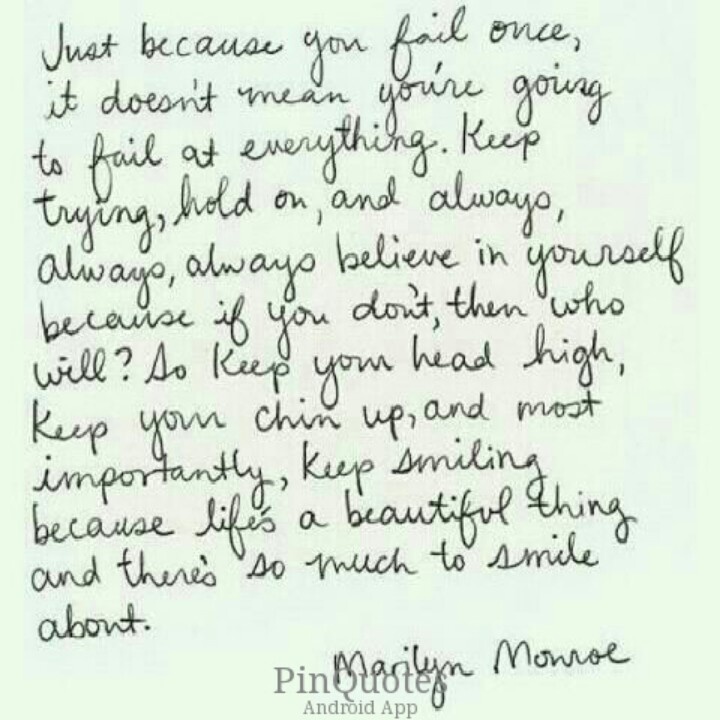 Just because you fail once,
it doesn't mean you're going
to fail at everything. Keep
trying, hold on, and always,
always, always believe in yourself
because if you don't, then who
will? So keep your head high,
keep your chin up, and most
importantly, keep smiling
because life's a beautiful thing
and there's so much to smile
about.
Marilyn Monroe
PinQuotes
Android App